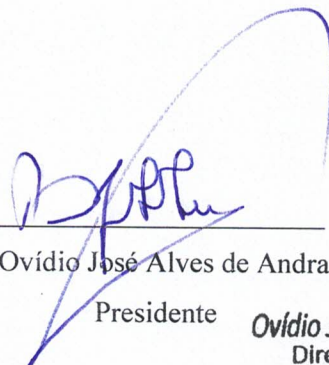 Ovídio José Alves de Andra
Presidente
Ovídio J
Dire